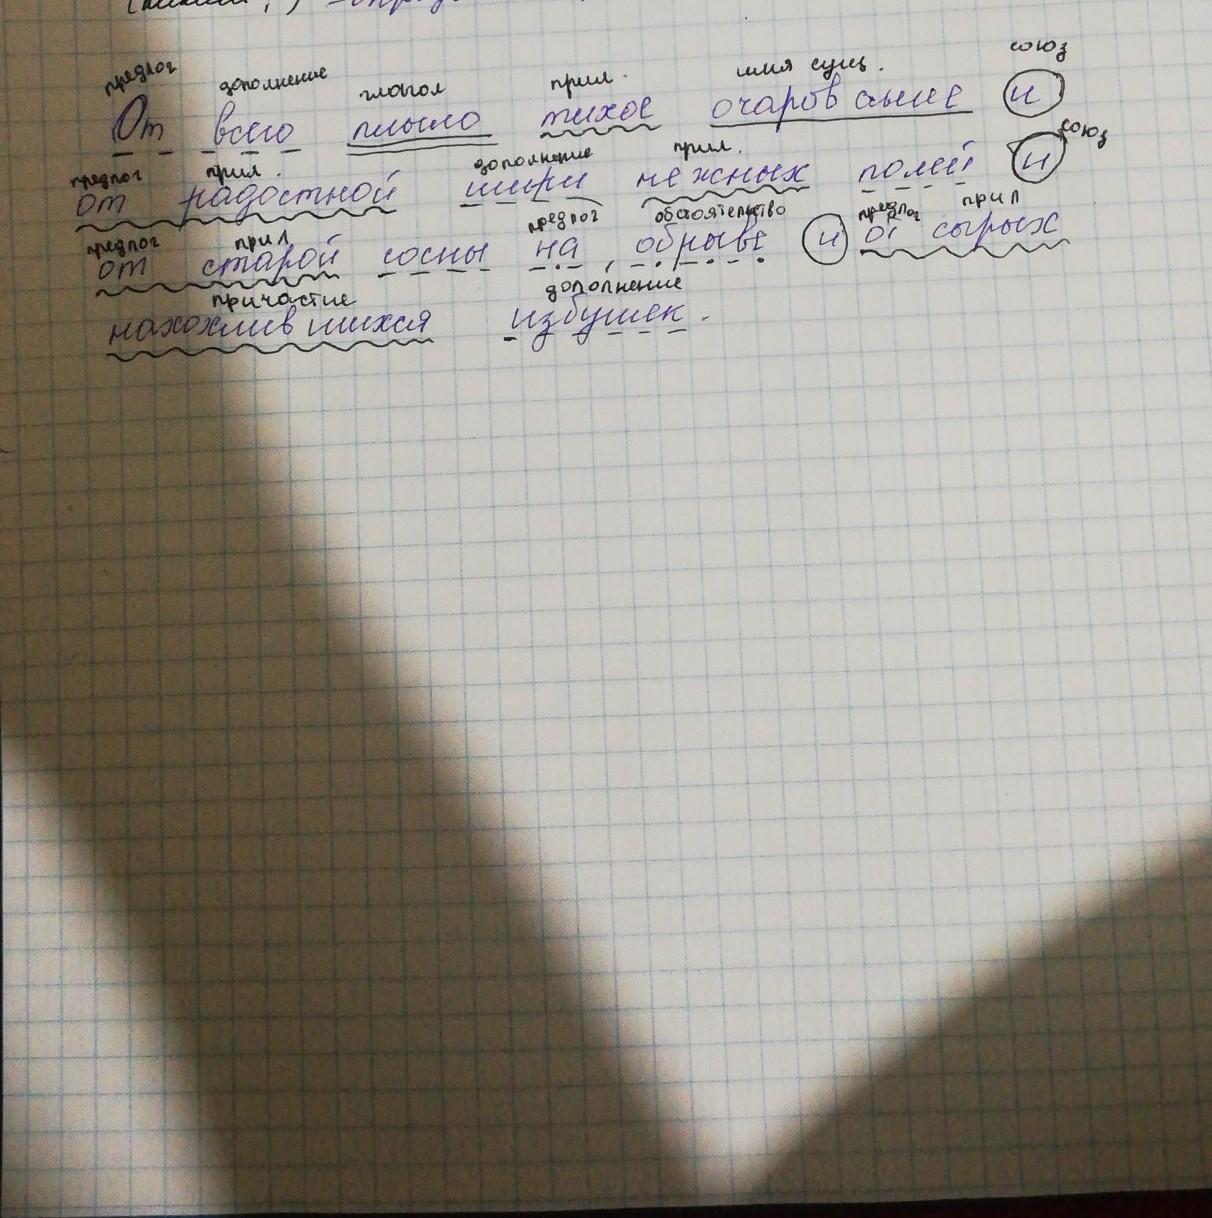 предлог дополнение глагол прил. имя сущ. союз
От всего плыло тихое очарование и
предлог прил. дополнение прил. союз
от радостной шири нежных полей и
предлог прил предлог обстоятельство предлог прил
от старой сосны на, обрыве и от сырых
причастие дополнение
нахохлившихся избушек.